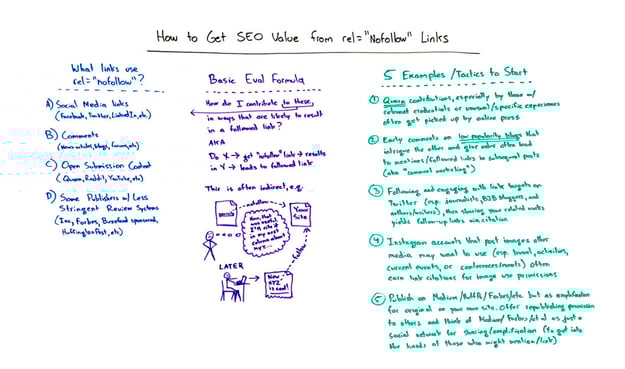 How to Get SEO Value from rel="Nofollow" Links
What links use
rel="nofollow"?
A) Social Media links
(Facebook, Twitter, LinkedIn, etc)
B) Comments
(News articles, blogs, forums, etc)
C) Open Submission Content
(Quora, Reddit, YouTube, etc)
D) Some Publishers w/ Less
Stringent Review Systems
(Inc, Forbes, Buzzfeed sponsored,
Huffington Post, etc)
Basic Eval Formula
How do I contribute to these,
in ways that are likely to result
in a followed link?
AKA
Do X → get "nofollow" link → results
in Y → leads to followed link
This is often indirect, e.g.
nofollow
Your
Site
Hmm, that
was useful.
I'll cite it
in my next
column about
XYZ...
follow
LATER
New
XYZ
is cool!
5 Examples/Tactics to Start
1 Quora contributions, especially by those w/
relevant credentials or unusual/specific experiences
often get picked up by online press
2 Early comments on low popularity blogs that
intrigue the author and give value often lead
to mentions/followed links in subsequent posts
(aka "comment marketing")
3 Following and engaging with link targets on
Twitter (e.g. journalists, B2B bloggers, and
authors/writers), then sharing your related works
yields follow-up links via citation
4 Instagram accounts that post images other
media may want to use (e.g. travel, activities,
current events, or conferences/events) often
earn link citations for image use permissions
5 Publish on Medium/HuffPo/Forbes/etc but as amplification
for original on your own site. Offer republishing permission
to others and think of Medium/Forbes/et al as just a
social network for sharing/amplification (to get into
the heads of those who might mention/link)